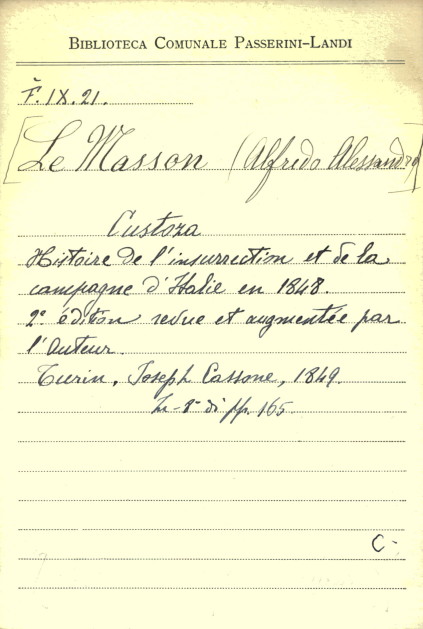 BIBLIOTECA COMUNALE PASSERINI-LANDI
F. IX. 21.
[Le Masson (Alfredo Alessandro)]
Custoza
Histoire de l'insurrection et de la
campagne d'Italie en 1848.
2ª édition revue et augmentée par
l'auteur.
Turin, Joseph Cassone, 1849.
In-8° di pp. 165
C-